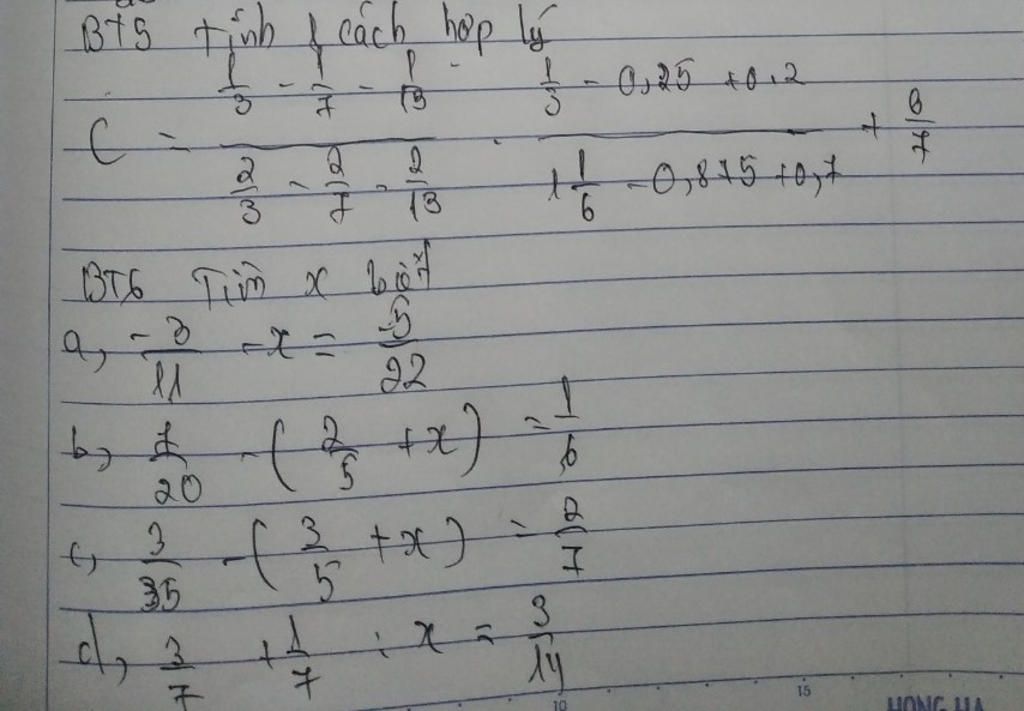 BT5 Tính 1 cách hợp lý
C = (1/3 - 1/7 - 1/13)/(2/3 - 2/7 - 2/13) . (1/3 - 0,25 + 0,2)/(1 1/6 - 0,875 + 0,7) + 6/7
BT6 Tìm x biết
a, -3/11 - x = -5/22
b, 7/20 - (2/5 + x) = 1/6
c, 3/35 - (3/5 + x) = 2/7
d, 3/7 + 1/7 : x = 3/14
10 15 HONG HA